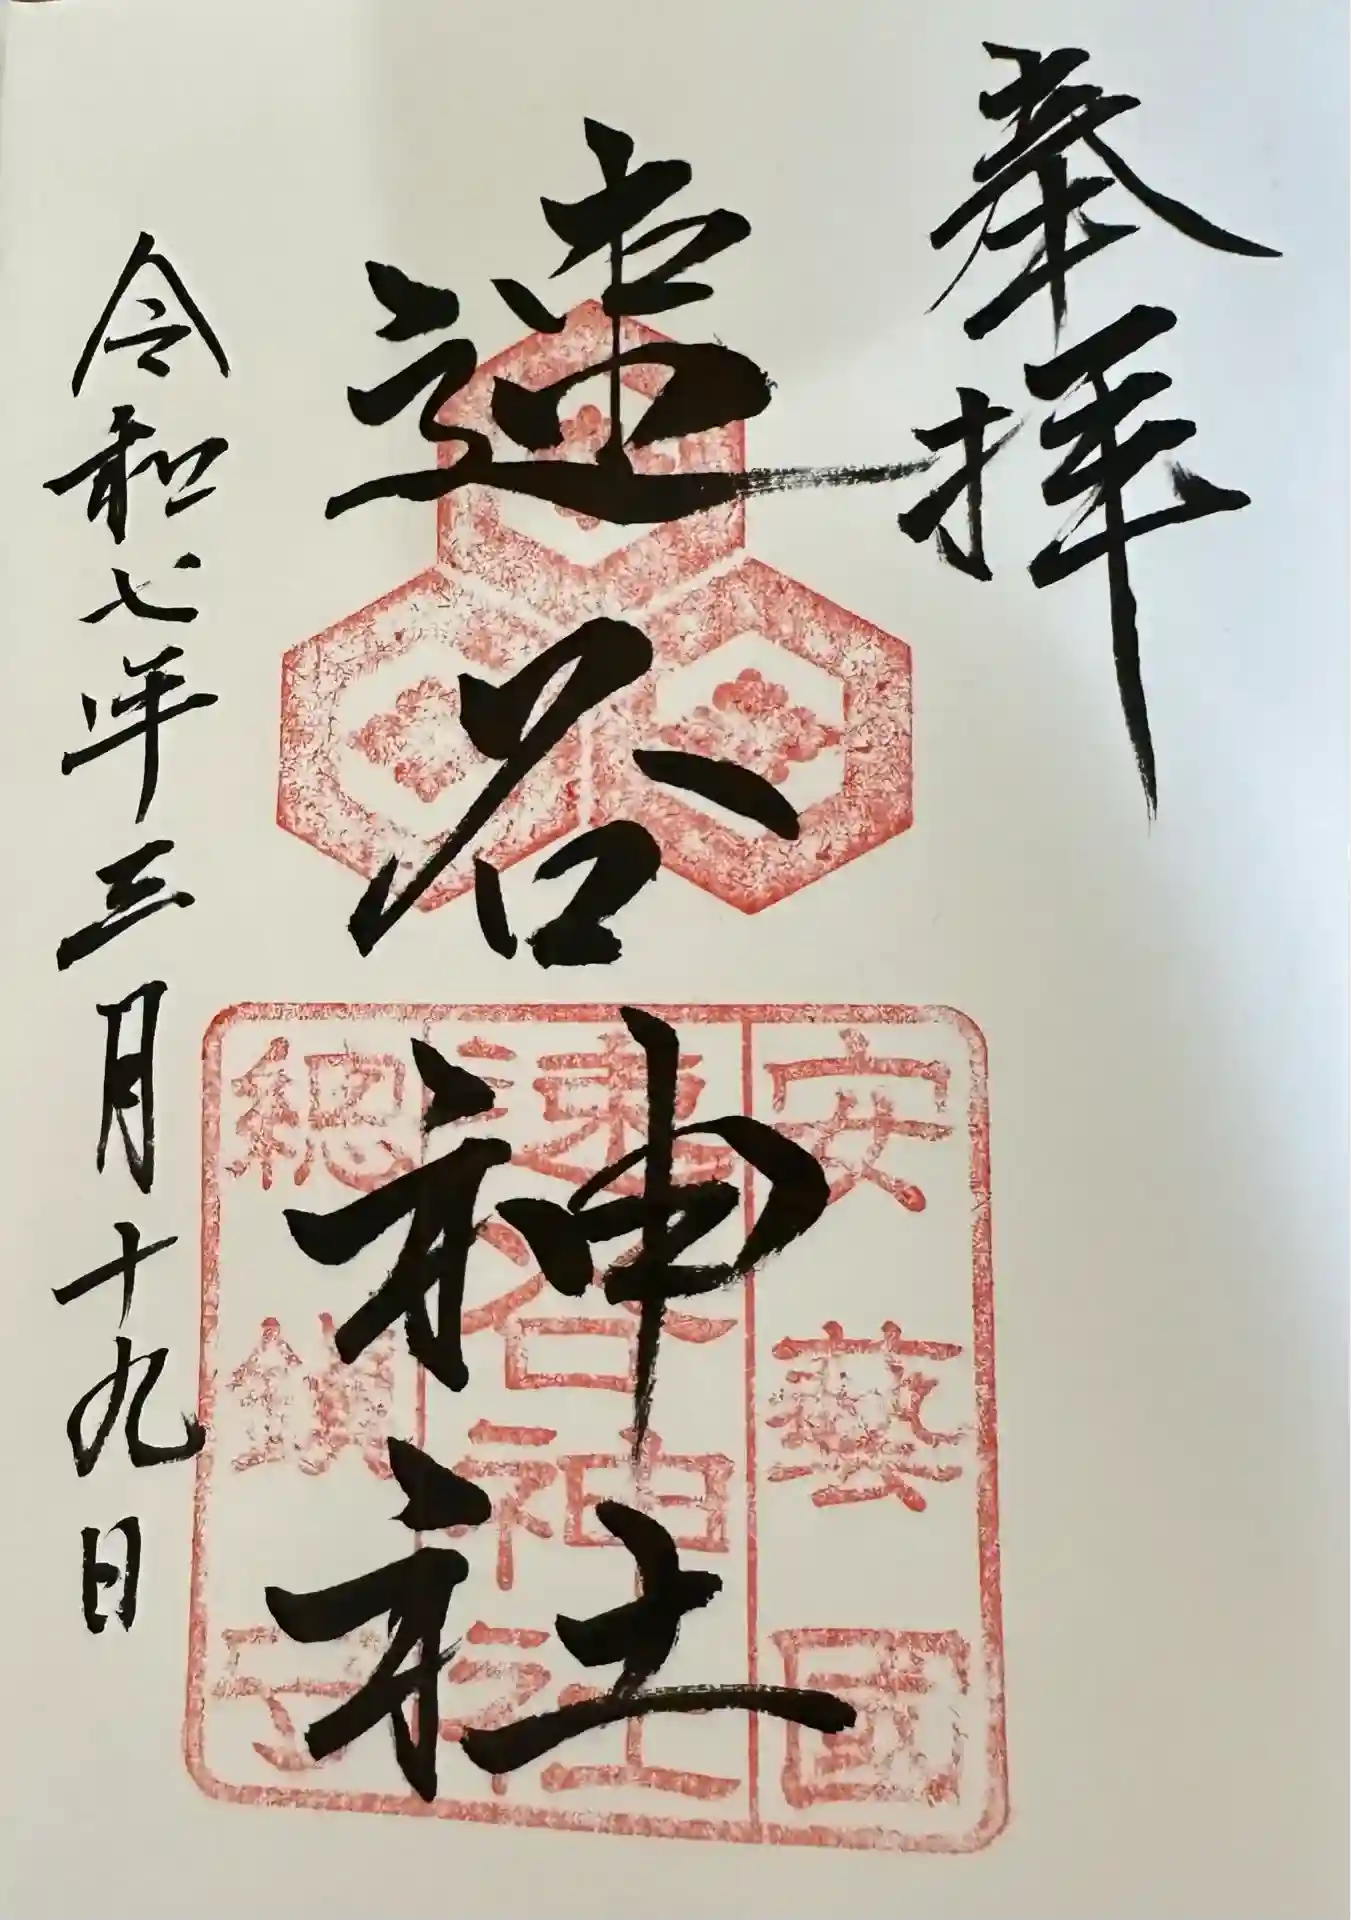 奉拝
速谷神社
令和七年三月十九日
安藝國
速谷神社
総鎮守